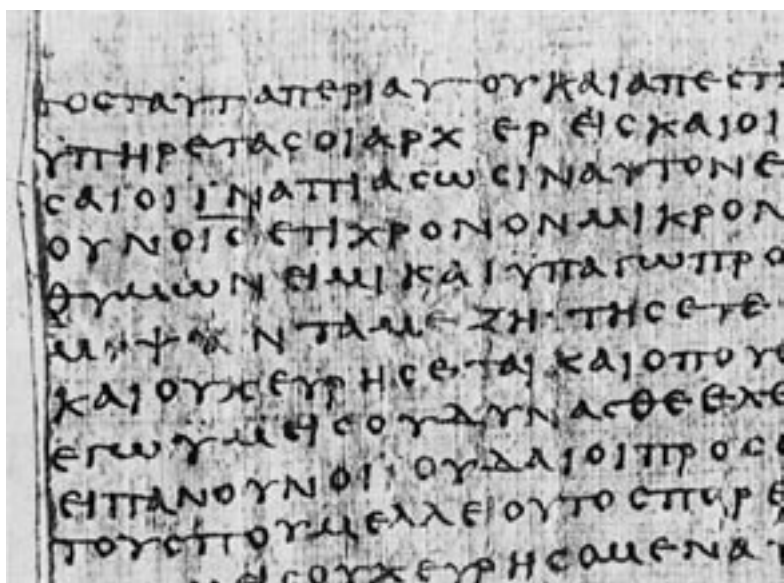 ΤΟϹΤΑΥΤΑΠΕΡΙΑΥΤΟΥΚΑΙΑΠΕϹΤ
ΫΠΗΡΕΤΑϹΟΙΑΡΧΕΡΕΙϹΚΑΙΟΙ
ϹΑΙΟΙΪΝΑΠΙΑϹΩϹΙΝΑΥΤΟΝΕ
ΟΥΝΟΙ̅Ϲ̅ΕΤΙΧΡΟΝΟΝΜΙΚΡΟΝ
ΘΥΜΩΝΕΙΜΙΚΑΙΥΠΑΓΩΠΡΟ
ΝΤΑΜΕΖΗΤΗϹΕΤΕ
ΚΑΙΟΥΧΕΥΡΗϹΕΤΑΙΚΑΙΟΠΟΥ
ΕΓΩΥΜΕΙϹΟΥΔΥΝΑϹΘΕΕΛΘ
ΕΙΠΑΝΟΥΝΟΙΙΟΥΔΑΙΟΙΠΡΟϹ
ΤΟΥϹΠΟΥΜΕΛΛΕΙΟΥΤΟϹΠΟΡΕ
ΜΕΙϹΟΥΧΕΥΡΗϹΟΜΕΝΑΥΤ